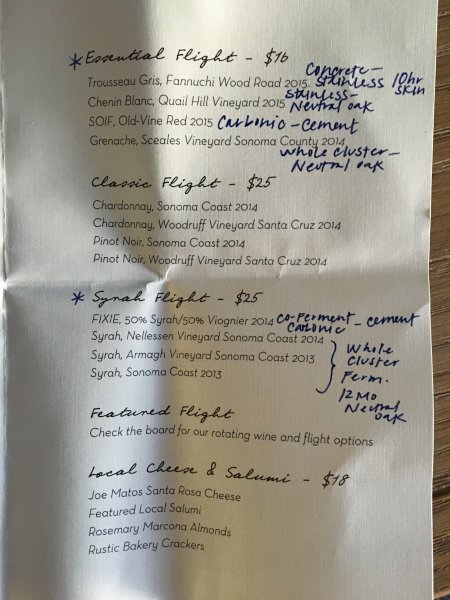 * Essential Flight - $16
Concrete-
Trousseau Gris, Fannuchi Wood Road 2015. Stainless 10hr skin
Stainless-
Chenin Blanc, Quail Hill Vineyard 2015 Neutral oak
SOIF, Old-Vine Red 2015 Carbonic - cement
Grenache, Sceales Vineyard Sonoma County 2014
Whole cluster-
Neutral oak
Classic Flight - $25
Chardonnay, Sonoma Coast 2014
Chardonnay, Woodruff Vineyard Santa Cruz 2014
Pinot Noir, Sonoma Coast 2014
Pinot Noir, Woodruff Vineyard Santa Cruz 2014
* Syrah Flight - $25
FIXIE, 50% Syrah/50% Viognier 2014 Co-ferment - cement
Carbonic
Syrah, Nellessen Vineyard Sonoma Coast 2014
Syrah, Armagh Vineyard Sonoma Coast 2013
Syrah, Sonoma Coast 2013
Whole
Cluster
Ferm.
12 Mo
Neutral
oak
Featured Flight
Check the board for our rotating wine and flight options
Local Cheese & Salumi - $18
Joe Matos Santa Rosa Cheese
Featured Local Salumi
Rosemary Marcona Almonds
Rustic Bakery Crackers